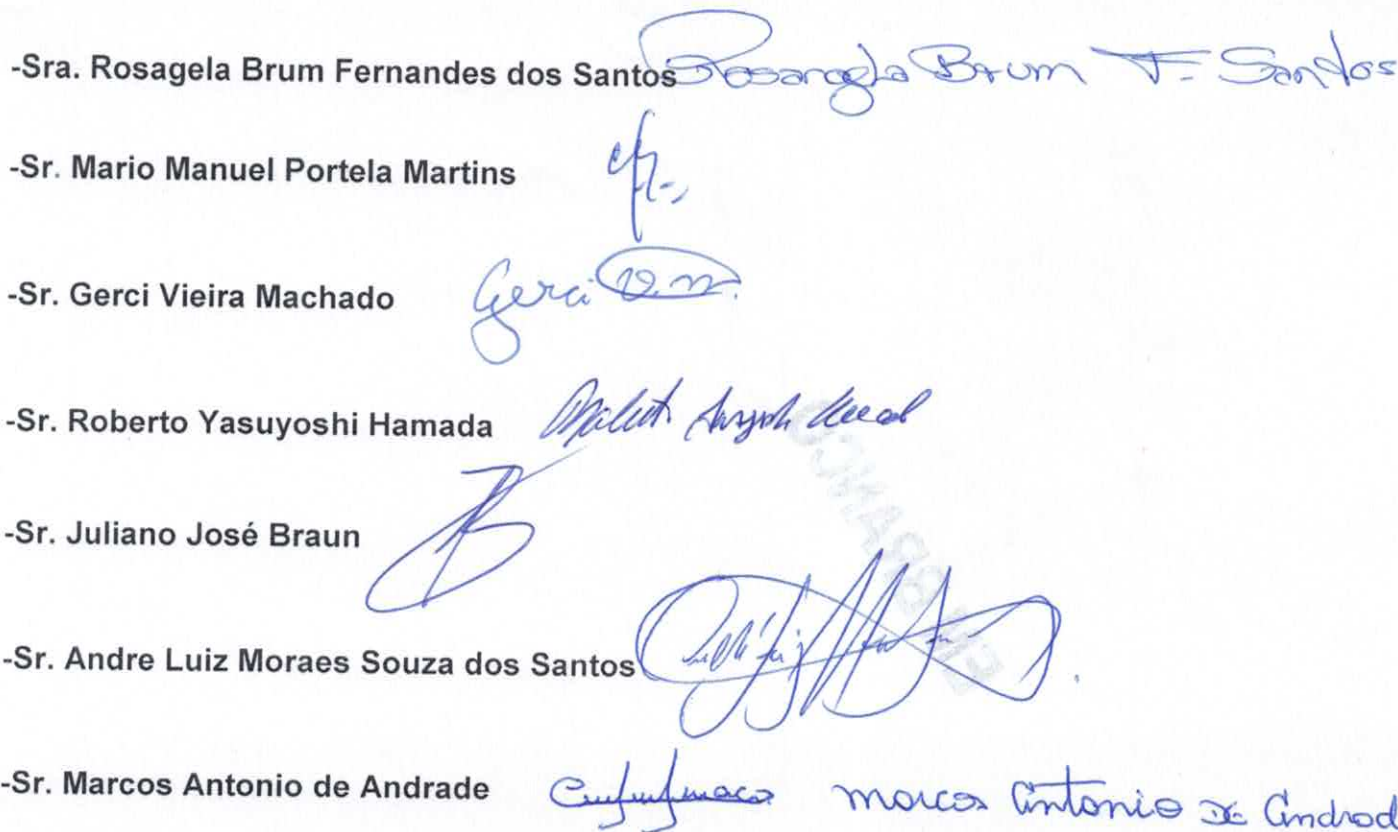 -Sra. Rosagela Brum Fernandes dos Santos Rosangela Brum F. Santos
-Sr. Mario Manuel Portela Martins
-Sr. Gerci Vieira Machado Gerci V. M.
-Sr. Roberto Yasuyoshi Hamada
-Sr. Juliano José Braun
EM BRANCO
-Sr. Andre Luiz Moraes Souza dos Santos
-Sr. Marcos Antonio de Andrade Marcos Antonio DE Andrad